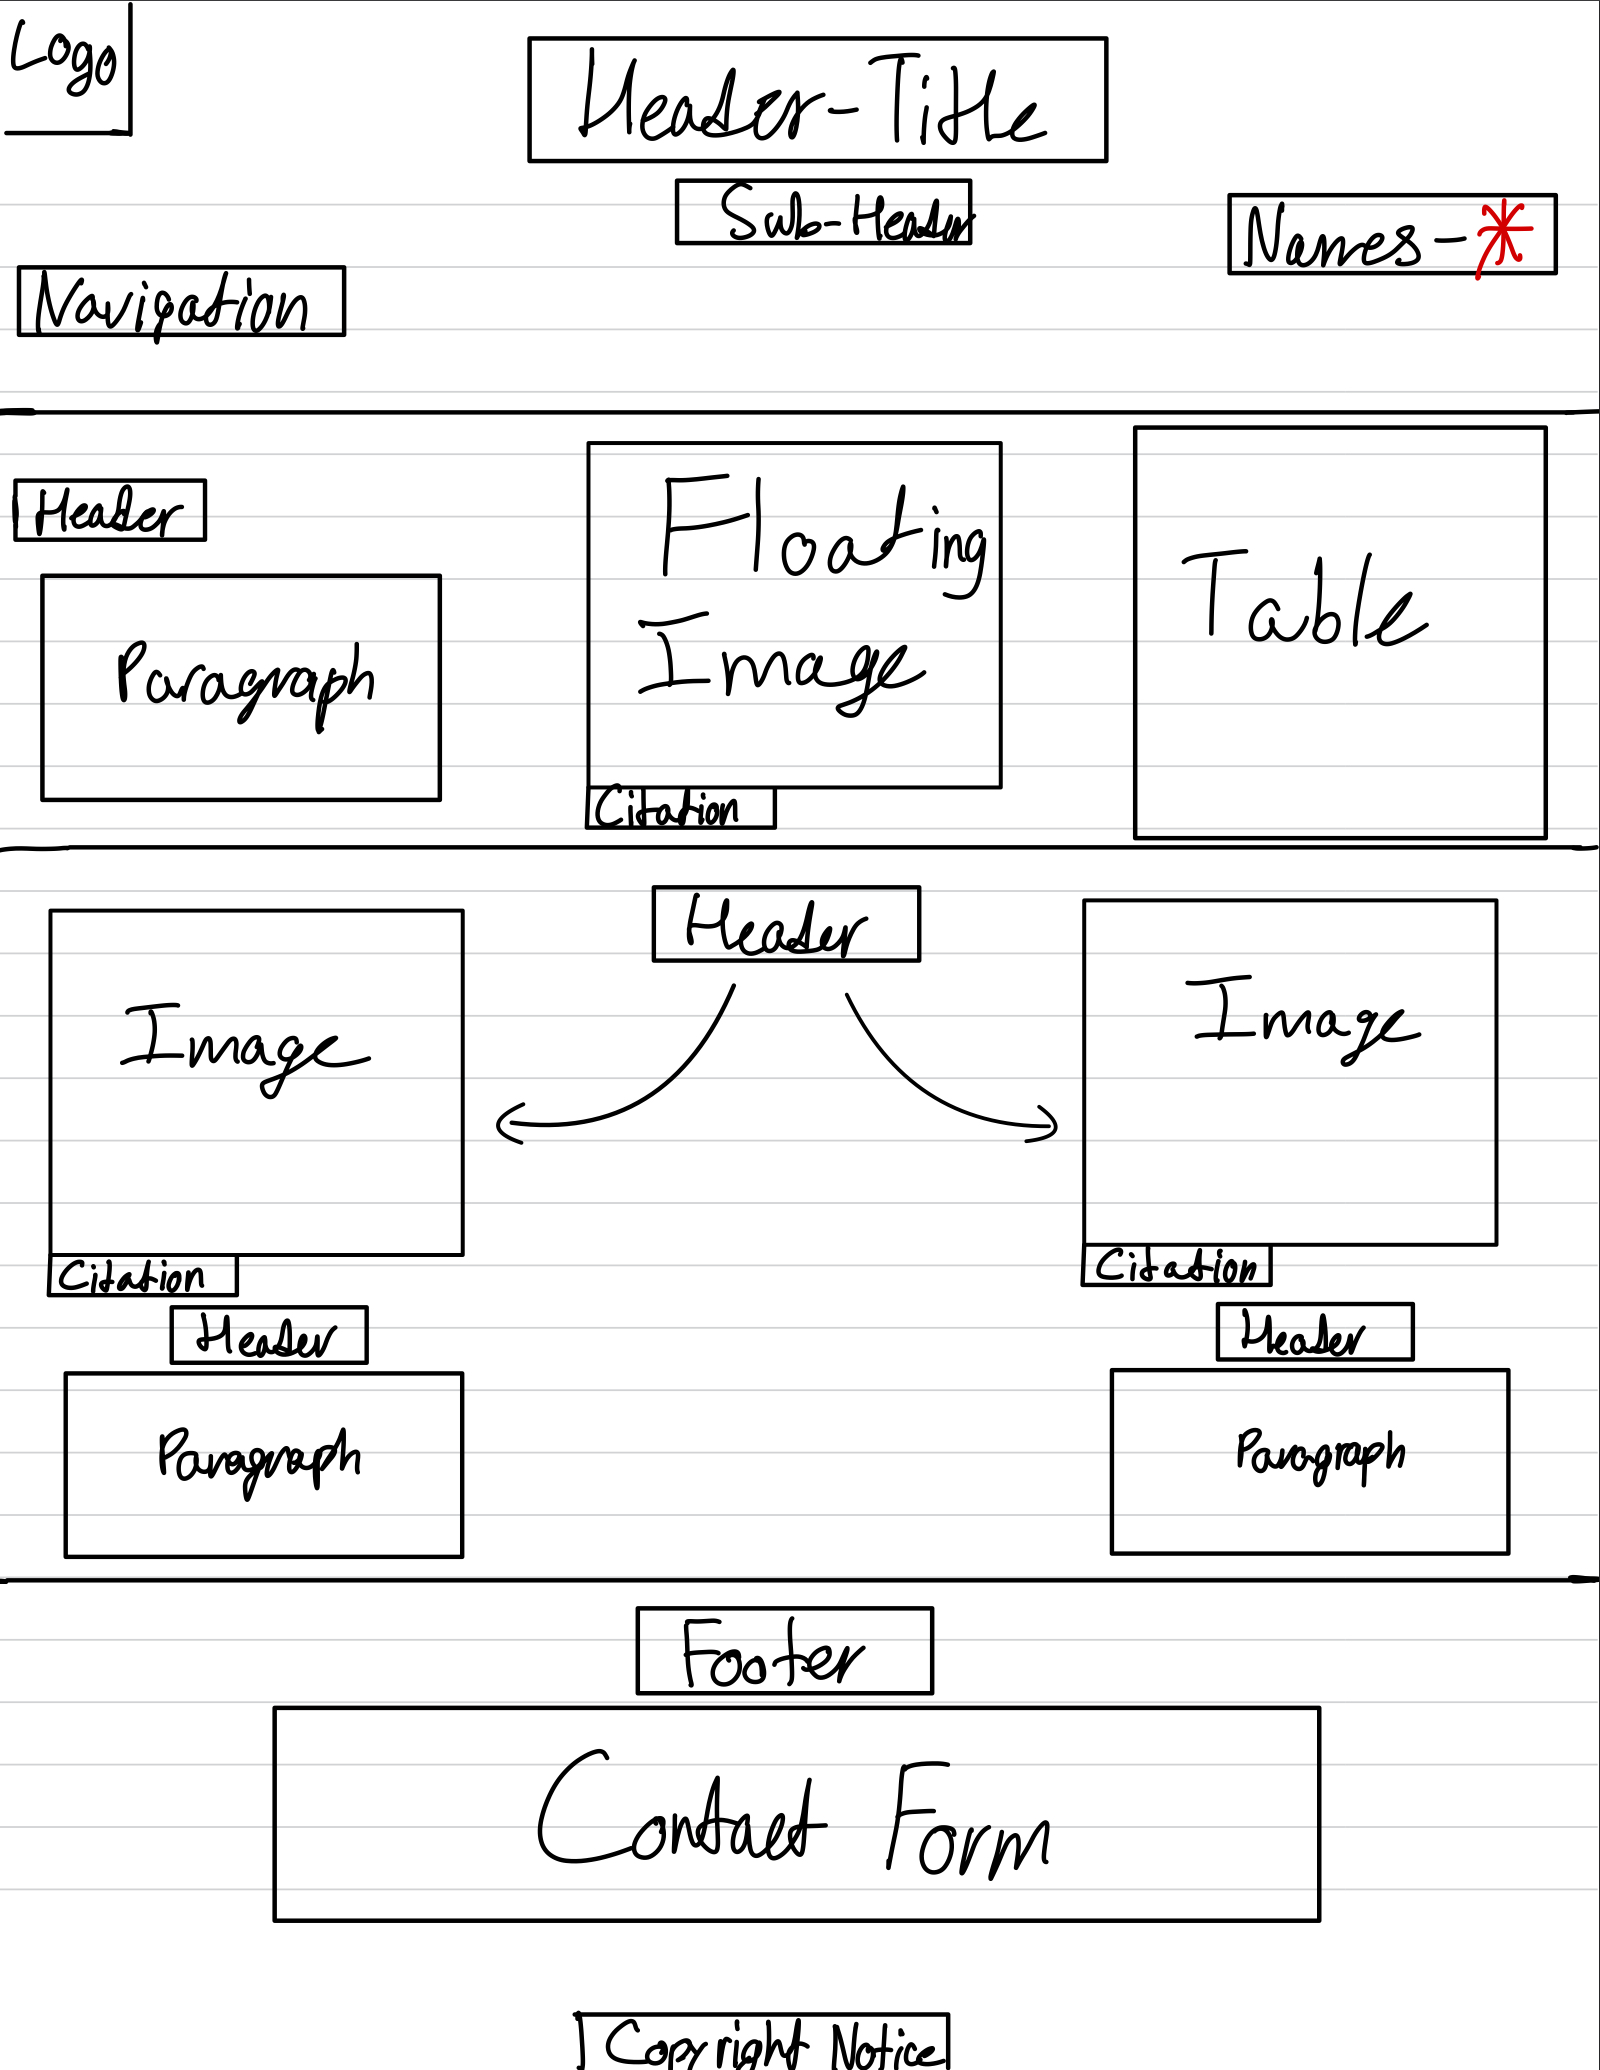 Logo
Header-Title
Sub-Header
Names-*
Navigation
Header
Paragraph
Floating
Image
Citation
Table
Header
Image
Citation
Image
Citation
Header
Paragraph
Header
Paragraph
Footer
Contact Form
Copyright Notice